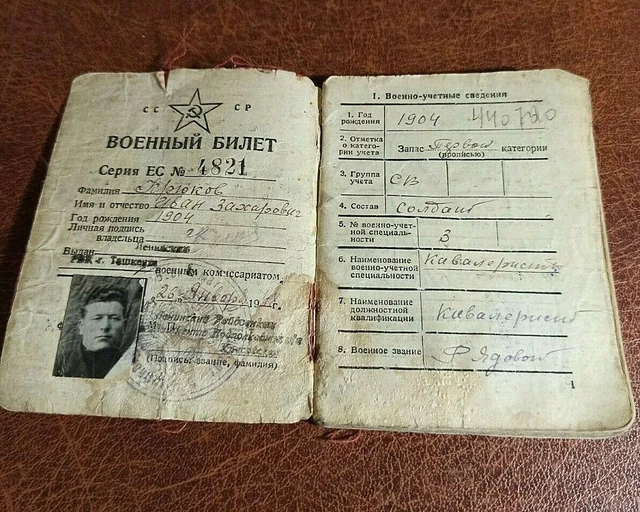 СС СР
ВОЕННЫЙ БИЛЕТ
Серия ЕС № 4821
Фамилия Крюков
Имя и отчество Иван Захарович
Год рождения 1904
Личная подпись
владельца
Выдан Ленинским
РВК г. Ташкента
военным комиссариатом
26 Января
(Подпись, звание, фамилия)
I. Военно-учетные сведения
1. Год рождения 1904 440720
2. Отметка о категории учета Запас Первой категории
(прописью)
3. Группа учета СВ
4. Состав солдат
5. № военно-учетной специальности 3
6. Наименование военно-учетной специальности Кавалерист
7. Наименование должностной квалификации Кавалерист
8. Военное звание Рядовой
1